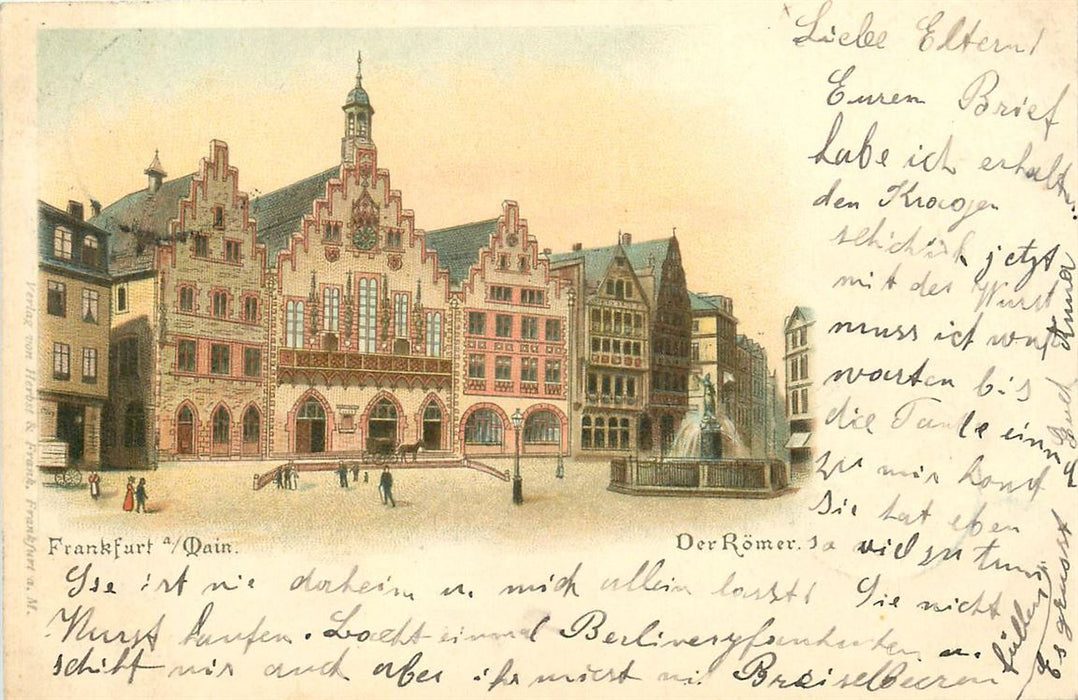 Liebe Eltern!
Euren Brief
habe ich erhalten
den Kragen
schickk jetzt
mit der Wurst
muss ich
warten bis
die Tante ein
zu mir komt
Sie hat eben
so viel zu tun
Frankfurt a/Main.
Der Römer.
Sie ist nie daheim u. mich allein lasst! Sie nicht
Wurst kaufen. Backt einmal u.
schikt mir auch aber ihr müsst mit Preiselbeeren
füllen
Es grüsst
Euch Anna
Verlag von Herbst & Frank, Frankfurt a. M.